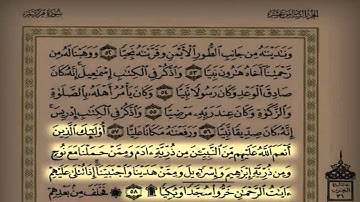 الجزء السادس عشر
سورة مريم
وَنَٰدَيْنَٰهُ مِن جَانِبِ ٱلطُّورِ ٱلْأَيْمَنِ وَقَرَّبْنَٰهُ نَجِيًّا ٥٢ وَوَهَبْنَا لَهُۥ مِن
رَّحْمَتِنَآ أَخَاهُ هَٰرُونَ نَبِيًّا ٥٣ وَٱذْكُرْ فِى ٱلْكِتَٰبِ إِسْمَٰعِيلَ إِنَّهُۥ كَانَ
صَادِقَ ٱلْوَعْدِ وَكَانَ رَسُولًا نَّبِيًّا ٥٤ وَكَانَ يَأْمُرُ أَهْلَهُۥ بِٱلصَّلَوٰةِ
وَٱلزَّكَوٰةِ وَكَانَ عِندَ رَبِّهِۦ مَرْضِيًّا ٥٥ وَٱذْكُرْ فِى ٱلْكِتَٰبِ إِدْرِيسَ
إِنَّهُۥ كَانَ صِدِّيقًا نَّبِيًّا ٥٦ وَرَفَعْنَٰهُ مَكَانًا عَلِيًّا ٥٧ أُو۟لَٰٓئِكَ ٱلَّذِينَ
أَنْعَمَ ٱللَّهُ عَلَيْهِم مِّنَ ٱلنَّبِيِّۦنَ مِن ذُرِّيَّةِ ءَادَمَ وَمِمَّنْ حَمَلْنَا مَعَ نُوحٍ
وَمِن ذُرِّيَّةِ إِبْرَٰهِيمَ وَإِسْرَٰٓءِيلَ وَمِمَّنْ هَدَيْنَا وَٱجْتَبَيْنَآ إِذَا تُتْلَىٰ عَلَيْهِمْ
ءَايَٰتُ ٱلرَّحْمَٰنِ خَرُّوا۟ سُجَّدًا وَبُكِيًّا ۩ ٥٨ فَخَلَفَ مِنۢ بَعْدِهِمْ